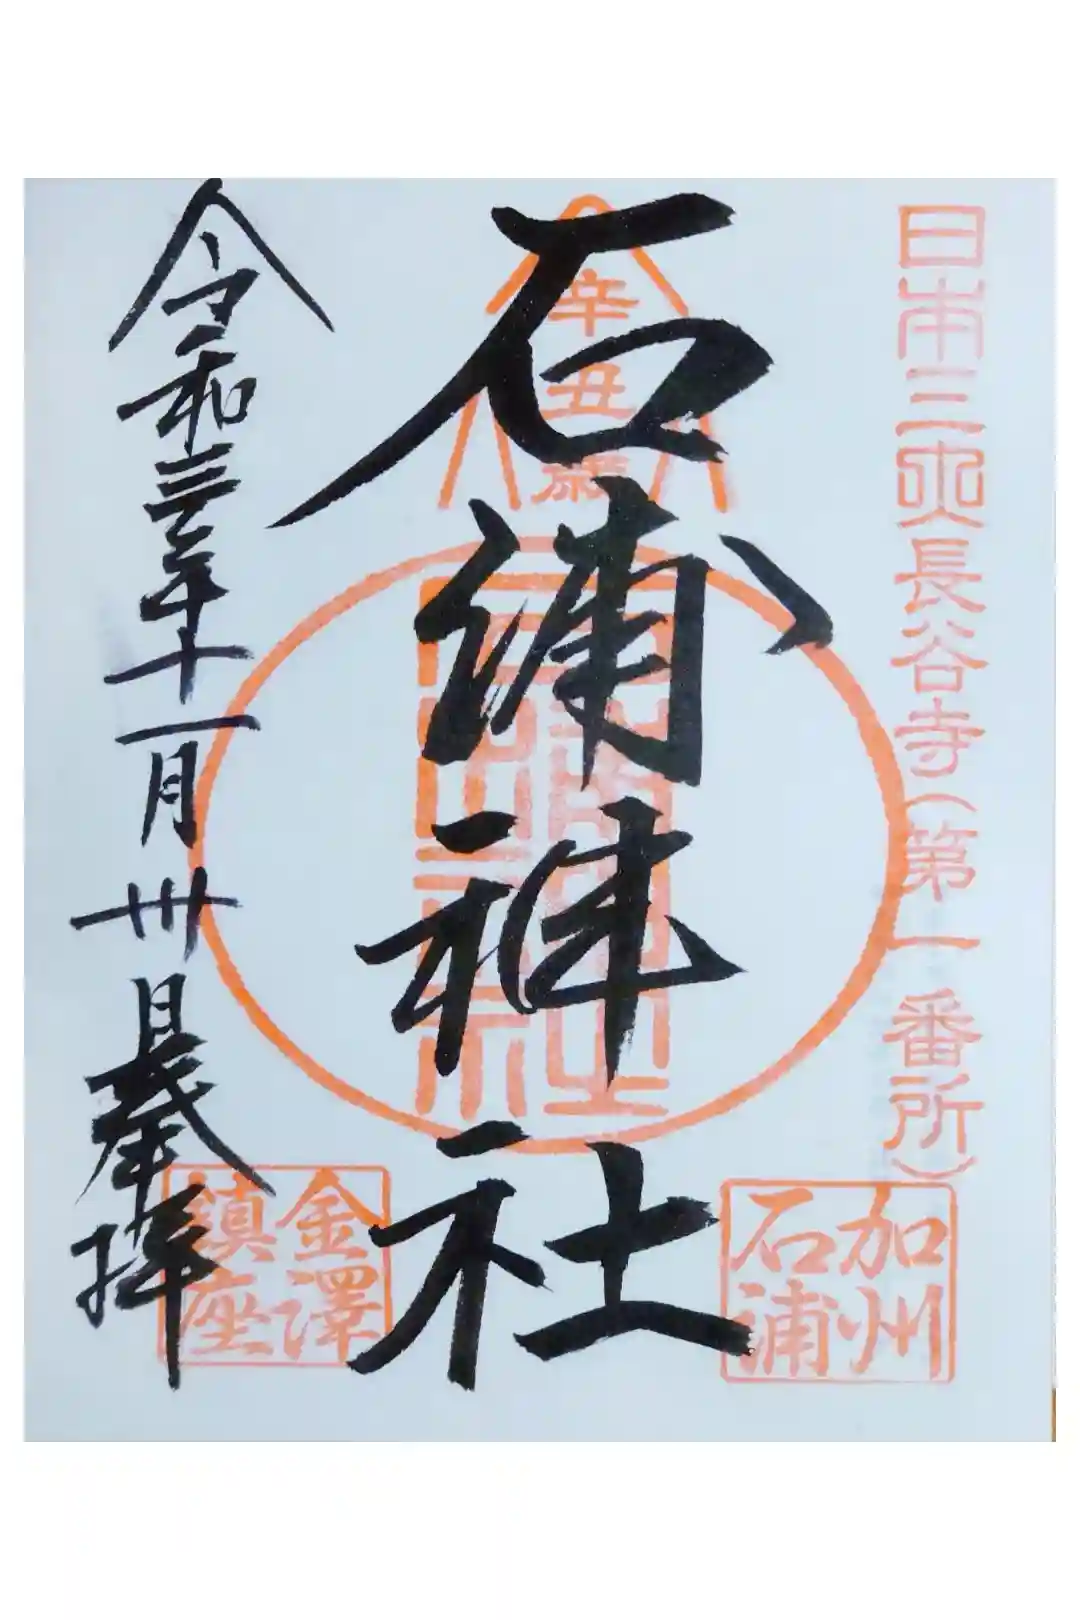 日本三大長谷寺(第一番所)
加州
石浦
辛丑歳
石浦神社
石浦神社
金澤
鎮座
令和三年十一月卅日奉拝